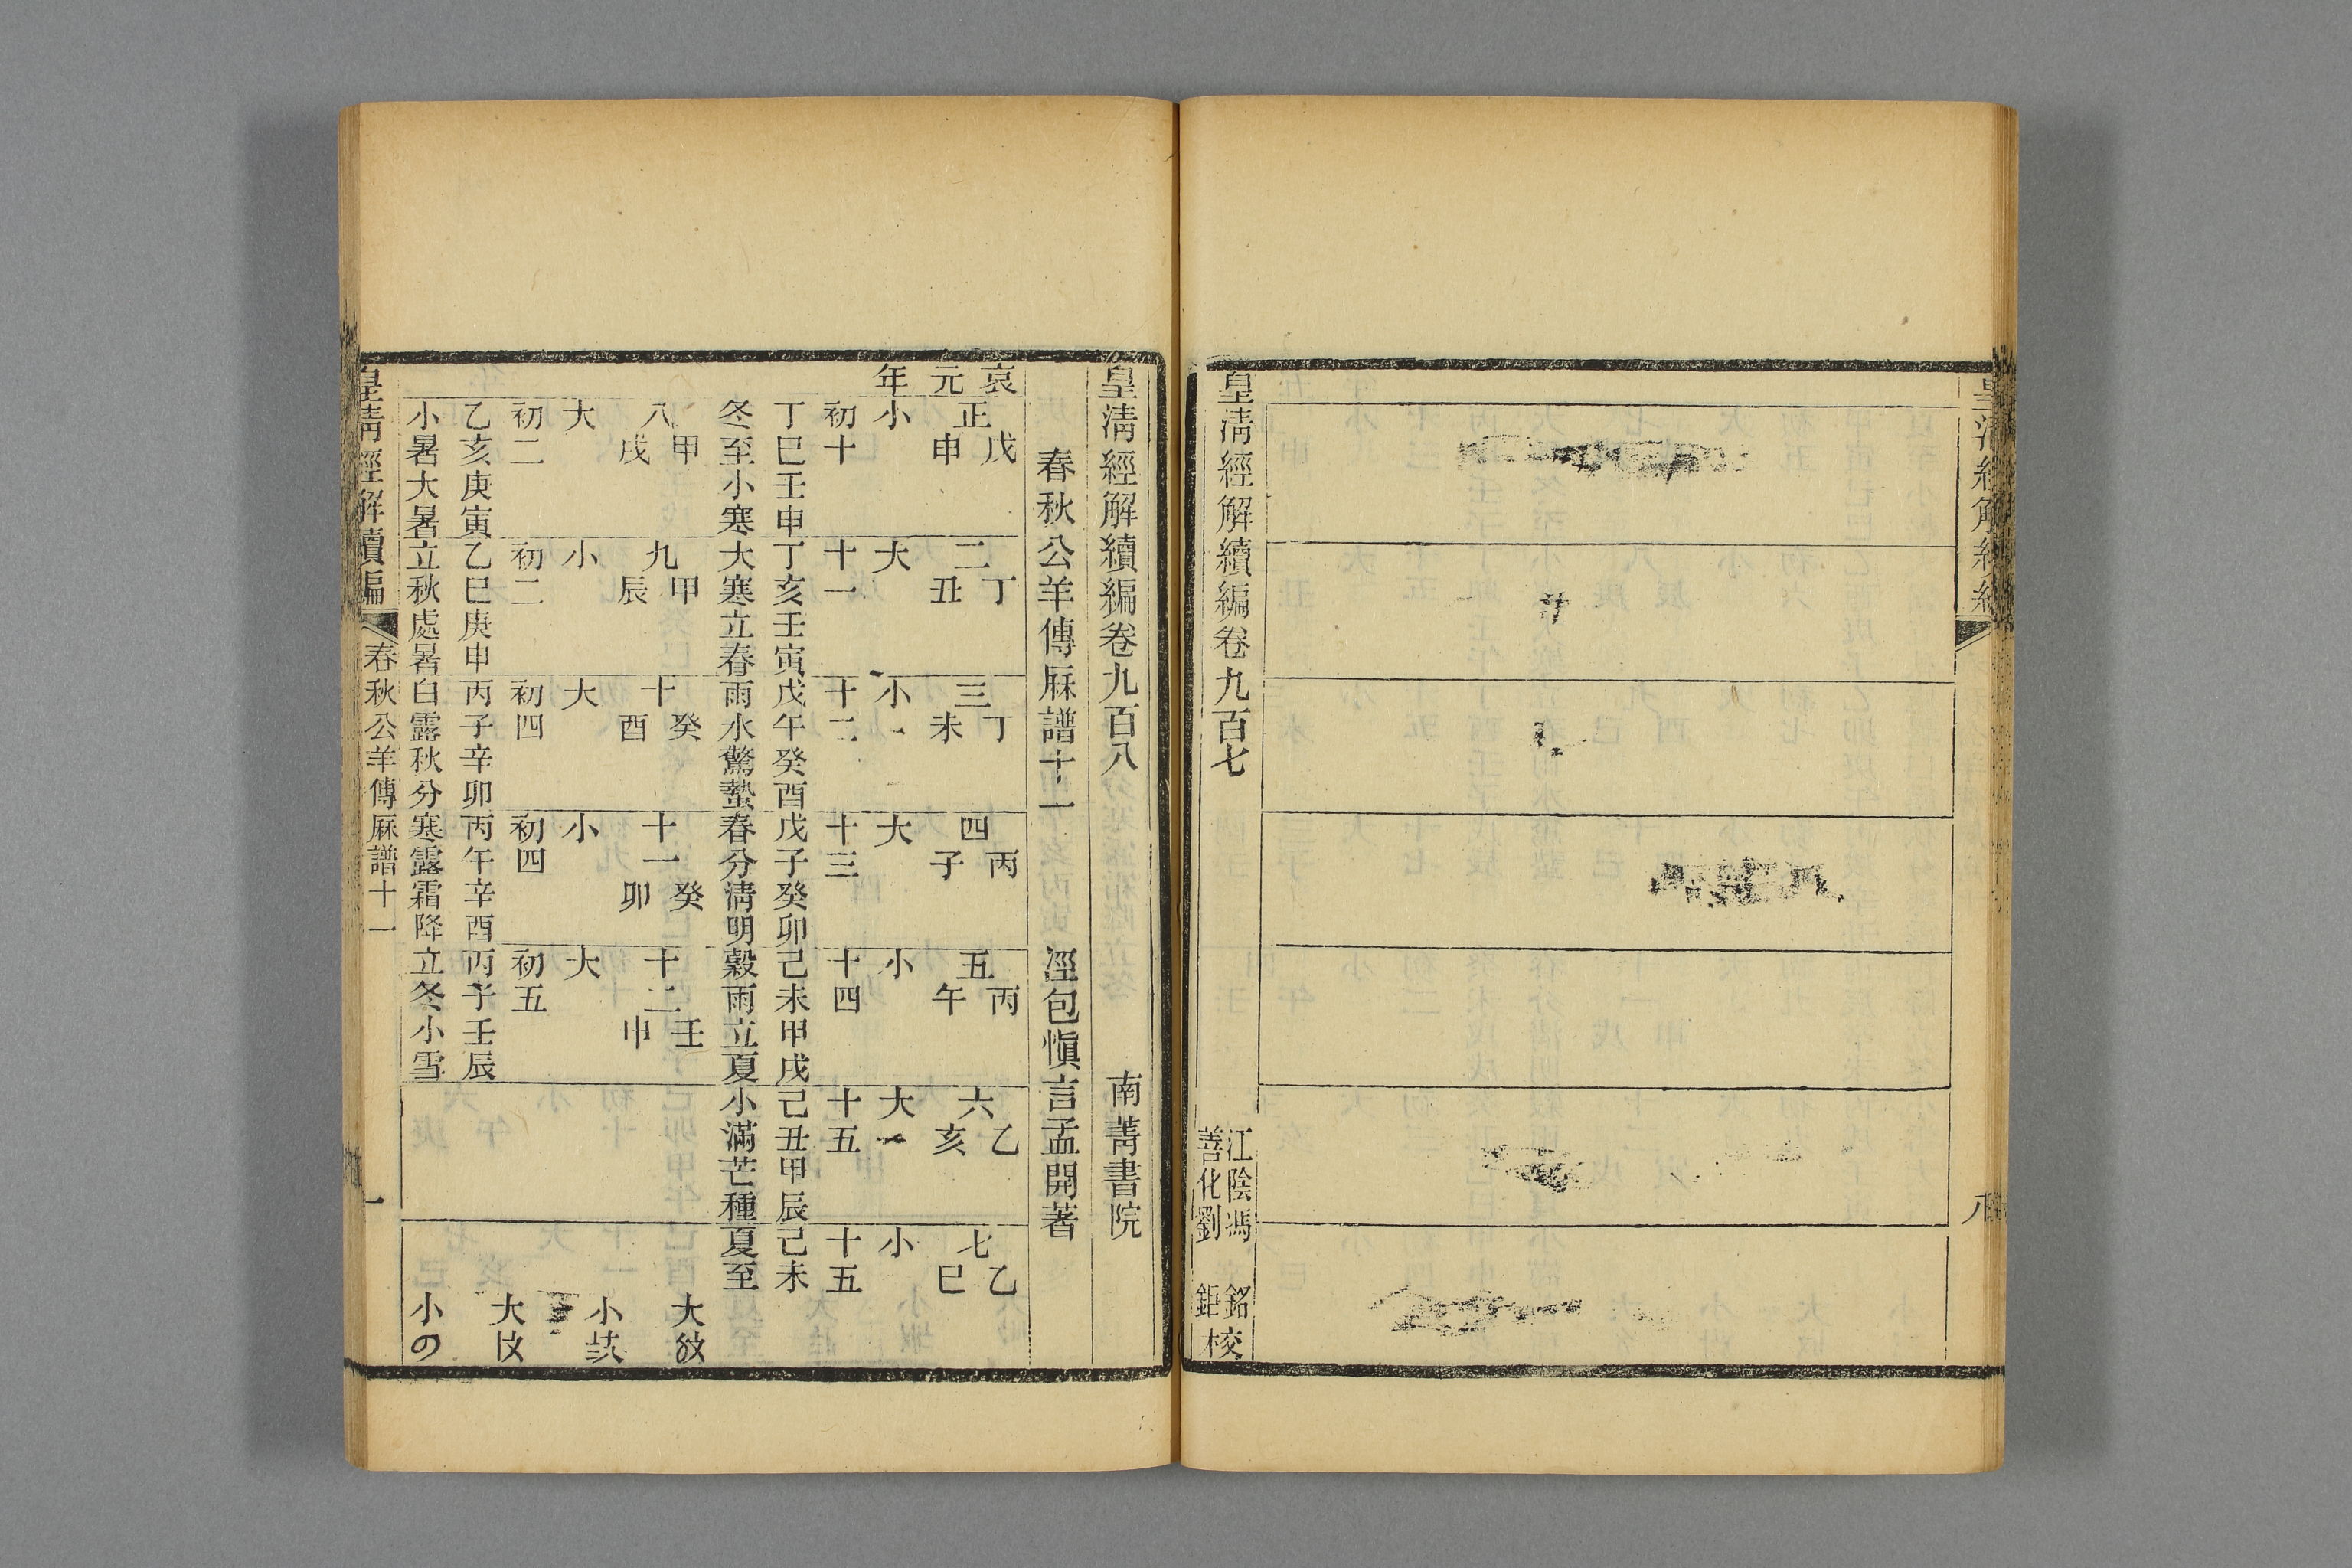 皇清經解續編卷九百七
江陰馮 銘
善化劉 鉅校
八
皇清經解續編卷九百八 南菁書院
春秋公羊傳厤譜十一 涇包愼言孟開著
哀元年
正 戊申 小 初十 丁巳壬申 冬至小寒
二 丁丑 大 十一 丁亥壬寅 大寒立春
三 丁未 小 十二 戊午癸酉 雨水驚蟄
四 丙子 大 十三 戊子癸卯 春分淸明
五 丙午 小 十四 己未甲戌 穀雨立夏
六 乙亥 大 十五 己丑甲辰 小滿芒種
七 乙巳 小 十五 己未 夏至
八 甲戌 大 初二 乙亥庚寅 小暑大暑
九 甲辰 小 初二 乙巳庚申 立秋處暑
十 癸酉 大 初四 丙子辛卯 白露秋分
十一 癸卯 小 初四 丙午辛酉 寒露霜降
十二 壬申 大 初五 丙子壬辰 立冬小雪
大
小
大
小
皇清經解續編 春秋公羊傳厤譜十一 一